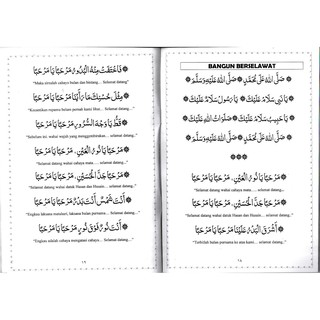 BANGUN BERSELAWAT
۞ صَلَّى اللهُ عَلَى مُحَمَّدٍ ۞ صَلَّى اللهُ عَلَيْهِ وَسَلَّمْ
۞ يَا نَبِي سَلَامٌ عَلَيْكَ ۞ يَا رَسُولْ سَلَامٌ عَلَيْكَ
۞ يَا حَبِيبْ سَلَامٌ عَلَيْكَ ۞ صَلَوَاتُ اللهْ عَلَيْكَ
۞ صَلَّى اللهُ عَلَى مُحَمَّدٍ ۞ صَلَّى اللهُ عَلَيْهِ وَسَلَّمْ
۞۞۞
۞ مَرْحَبًا يَا نُورَ الْعَيْنِ. مَرْحَبًا يَا مَرْحَبًا
"Selamat datang wahai cahaya mata.... selamat datang..."
۞ مَرْحَبًا جَدَّ الْحُسَيْنِ. مَرْحَبًا يَا مَرْحَبًا
"Selamat datang wahai datuk Hasan dan Husain.... selamat datang..."
۞ أَشْرَقَ الْبَدْرُ عَلَيْنَا مَرْحَبًا يَا مَرْحَبًا
"Terbitlah bulan purnama ke atas kami.... selamat datang..."
١٨
۞ فَاخْتَفَتْ مِنْهُ الْبُدُورُ مَرْحَبًا يَا مَرْحَبًا
"Maka pudarlah cahaya bulan dan bintang.... Selamat datang..."
۞ مِثْلَ حُسْنِكْ مَا رَأَيْنَا مَرْحَبًا يَا مَرْحَبًا
۞ قَطُّ يَا وَجْهَ السُّرُورِ مَرْحَبًا يَا مَرْحَبًا
"Sebelum ini wahai wajah yang menggembirakan.... selamat datang..."
۞ مَرْحَبًا يَا نُورَ الْعَيْنِ. مَرْحَبًا يَا مَرْحَبًا
"Selamat datang wahai cahaya mata.... selamat datang..."
۞ مَرْحَبًا جَدَّ الْحُسَيْنِ. مَرْحَبًا يَا مَرْحَبًا
"Selamat datang wahai datuk Hasan dan Husain.... selamat datang..."
۞ أَنْتَ شَمْسٌ أَنْتَ بَدْرٌ مَرْحَبًا يَا مَرْحَبًا
"Engkau laksana matahari, laksana bulan purnama.... selamat datang..."
۞ أَنْتَ نُورٌ فَوْقَ نُورٍ مَرْحَبًا يَا مَرْحَبًا
"Engkau adalah cahaya mengatasi cahaya.... Selamat datang..."
١٩